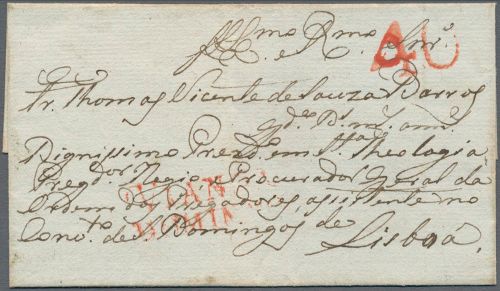 Illmo e Rmo Snr.
40
Fr. Thomas Vicente de Souza Barros
Digníssimo Prezdo em Sta Theologia
Pregdor Regio e Procurador Geral da
Ordem dos Pregadores asistente no
Convto de S. Domingos de
Lisboa.